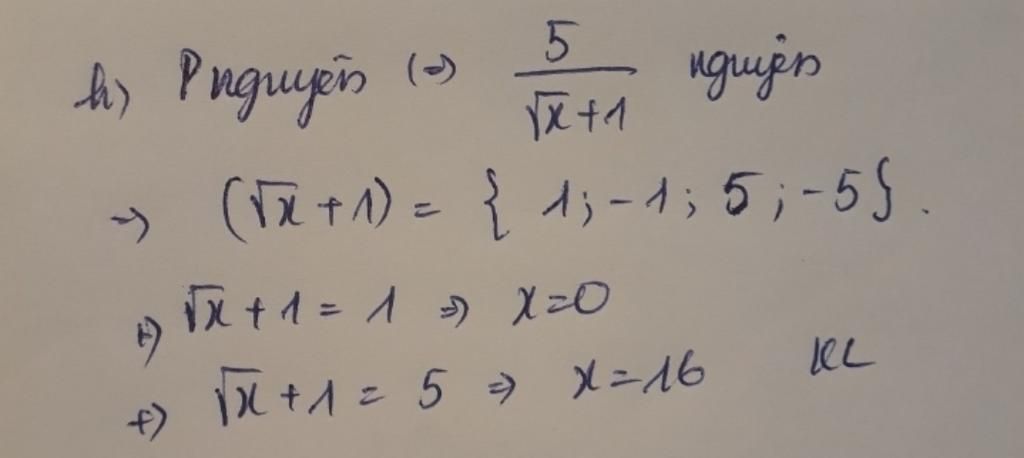 h) P nguyên (=) 5/(√x+1) nguyên
=> (√x + 1) = { 1; -1; 5; -5}.
+) √x + 1 = 1 => x=0
+) √x + 1 = 5 => x=16 KL